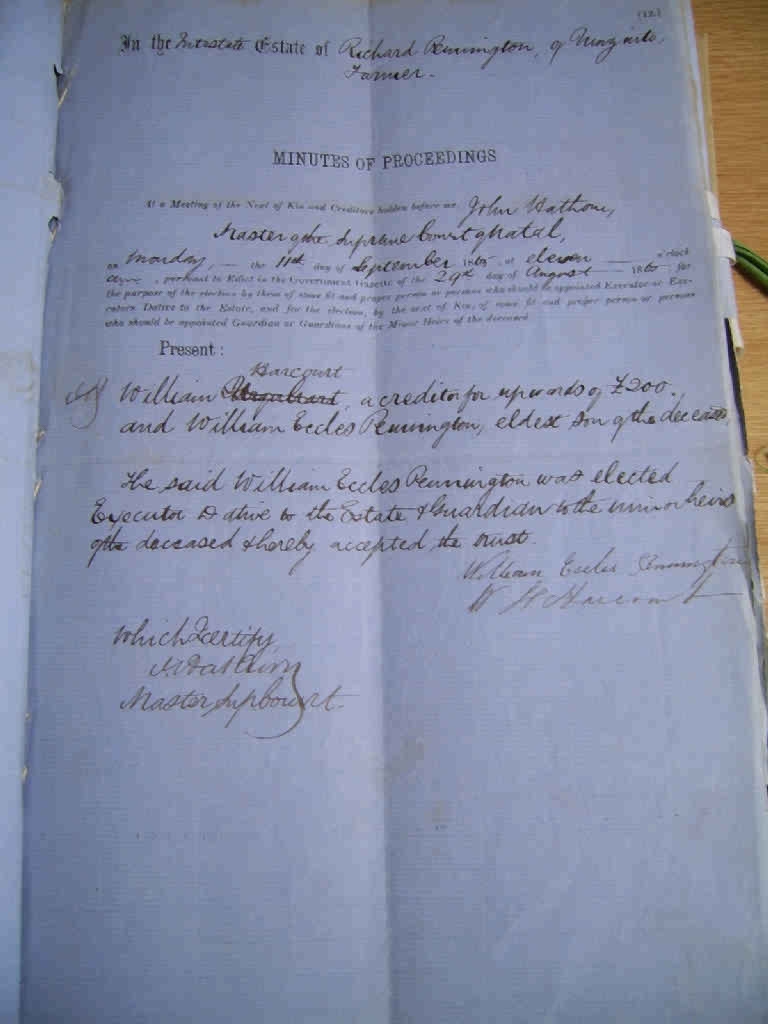 (12.)
In the Intestate Estate of Richard Pennington, of
Farmer.
MINUTES OF PROCEEDINGS
At a Meeting of the Next of Kin and Creditors holden before me John
Master of the Supreme Court of Natal,
on Monday, — the 11th day of September 1865, at eleven — o'clock
, pursuant to Edict in the Government Gazette of the 29th day of August — 1865, for
the purpose of the election by them of some fit and proper person or persons who should be appointed Executor or Exe-
cutors Dative to the Estate, and for the election, by the next of Kin, of some fit and proper person or persons
who should be appointed Guardian or Guardians of the Minor Heirs of the deceased.
Present :
Harcourt
William , a creditor for upwards of £200.,
and William Eccles Pennington, eldest son of the deceased,
He said William Eccles Pennington was elected
Executor Dative to the Estate & Guardian to the minor heirs
of the deceased & hereby accepted the trust.
William Eccles Pennington
W H Harcourt
Which I certify
Master Sup Court.